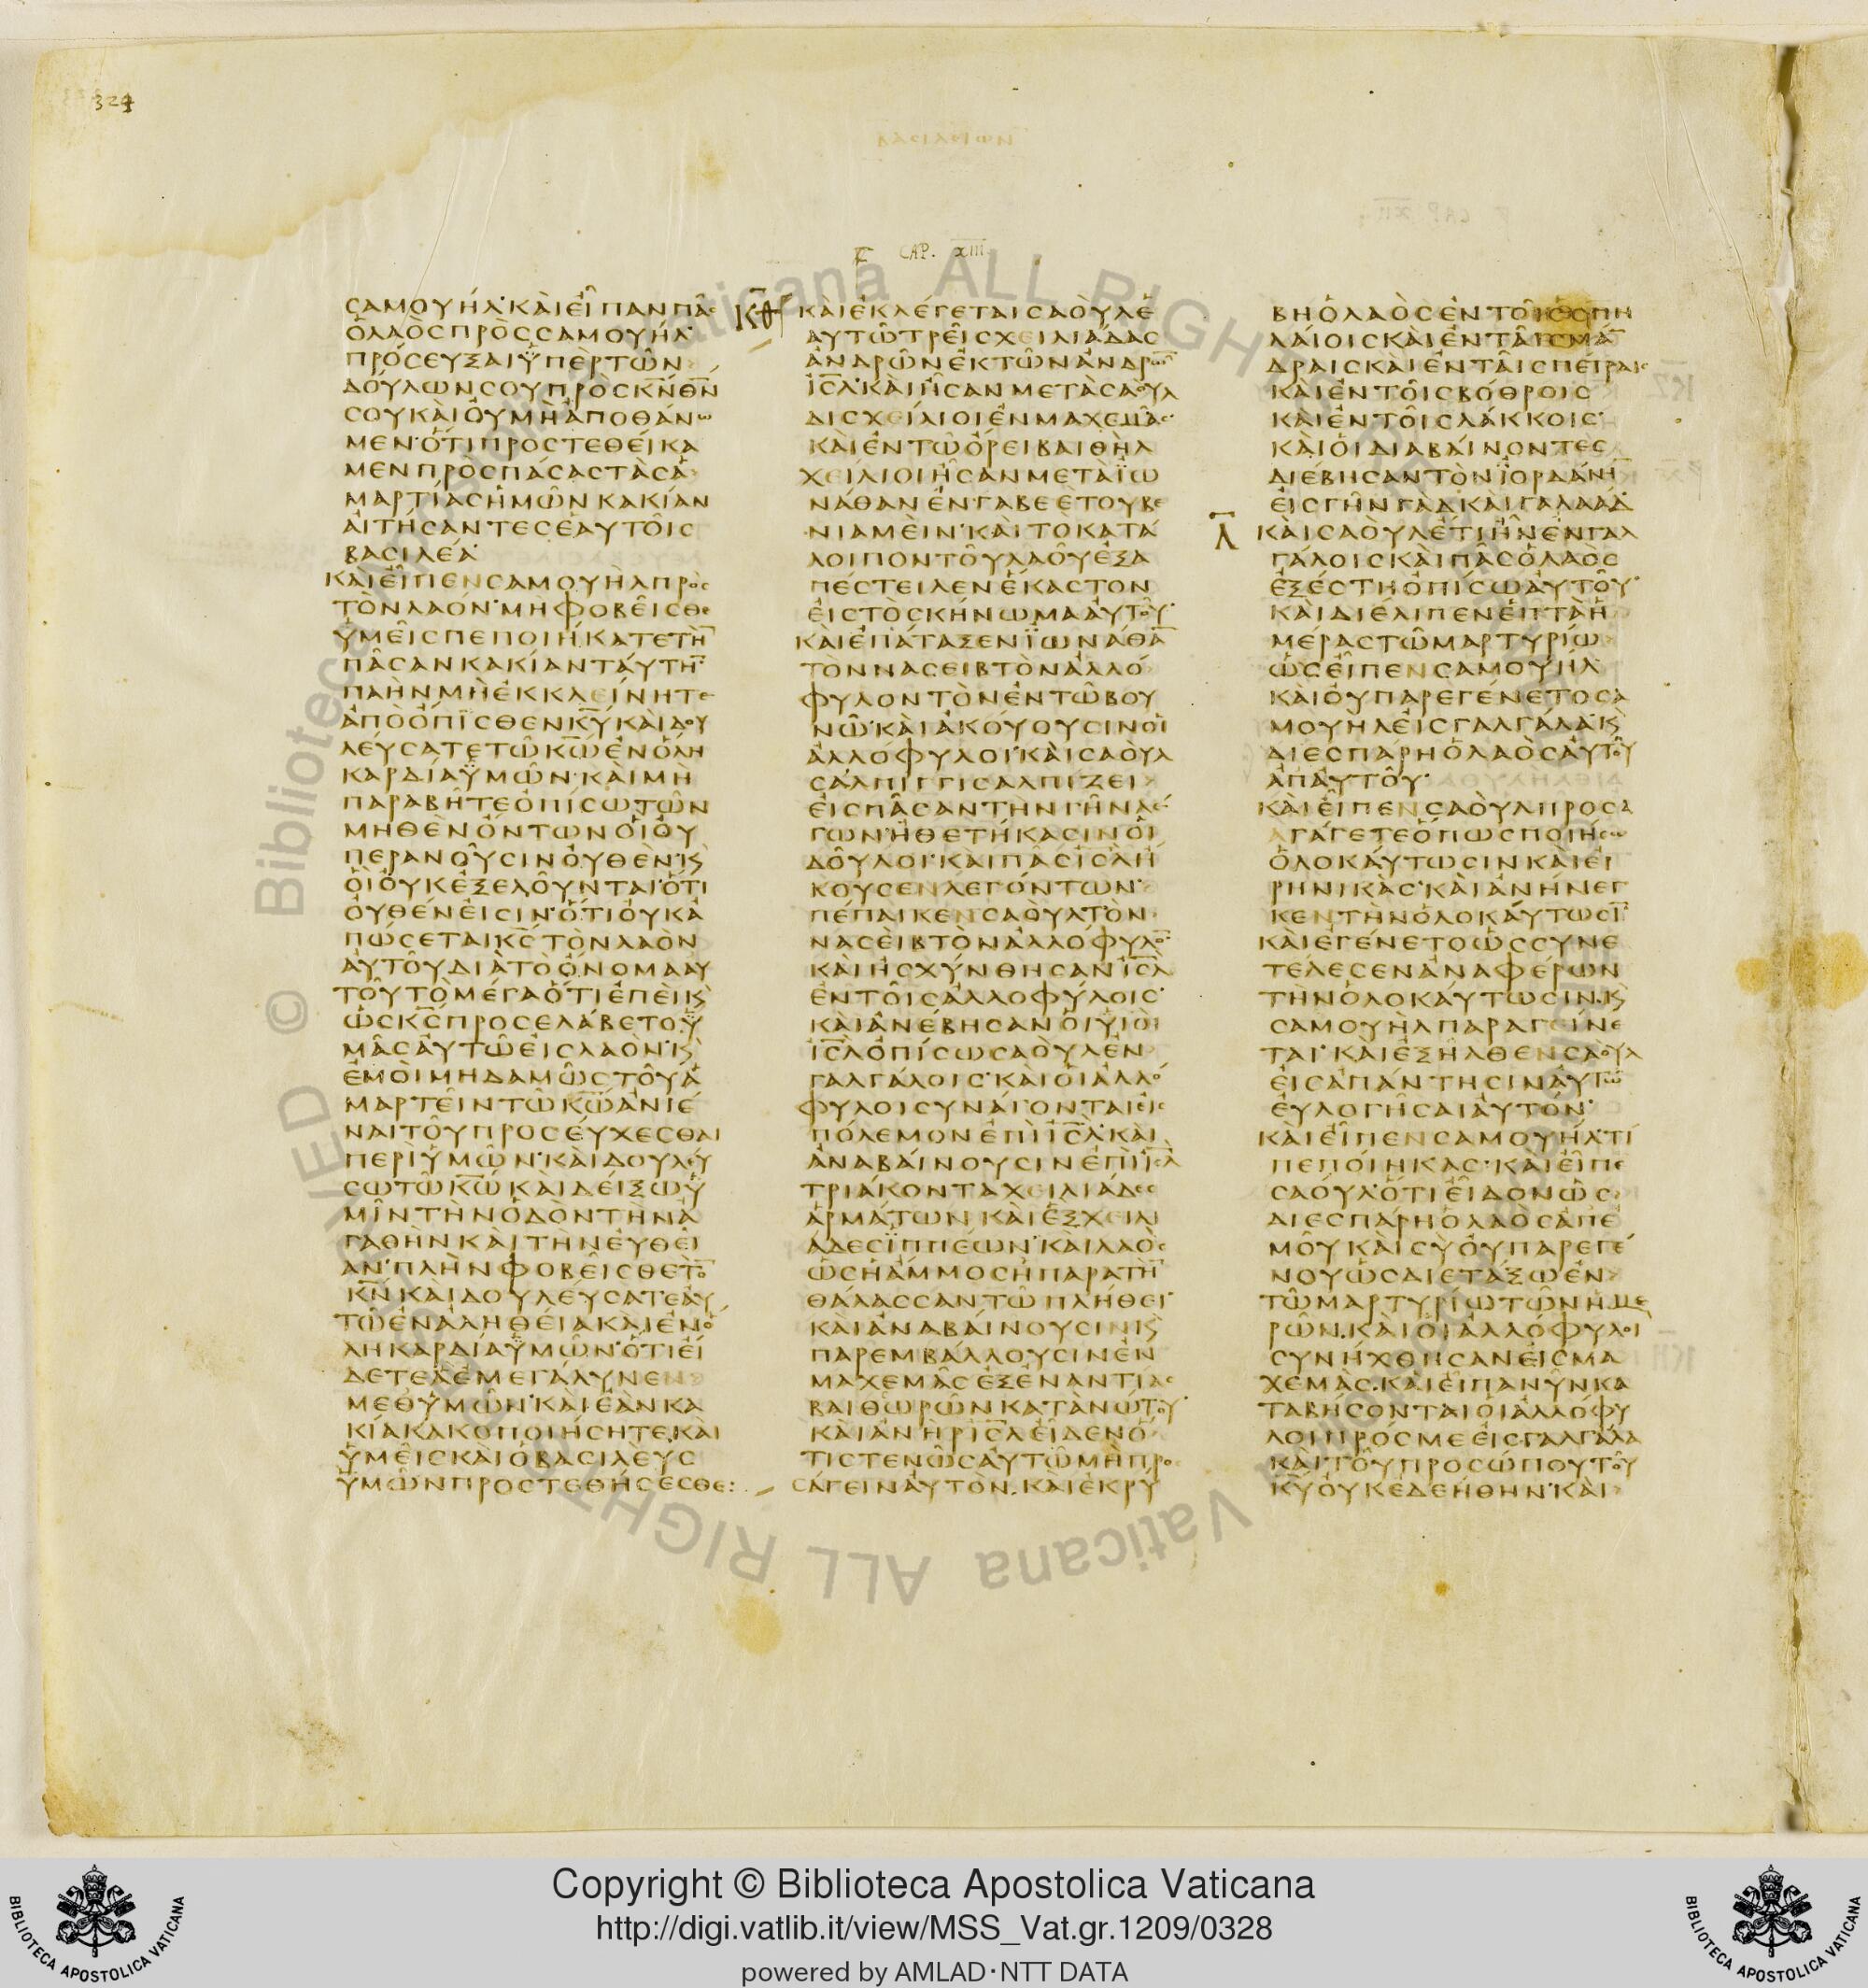 324
CAP. XIII
ϹΑΜΟΥΗΛ ΚΑΙ ΕΙΠΑΝ ΠΑϹ
Ο ΛΑΟϹ ΠΡΟϹ ϹΑΜΟΥΗΛ
ΠΡΟϹΕΥΞΑΙ ΥΠΕΡ ΤΩΝ
ΔΟΥΛΩΝ ϹΟΥ ΠΡΟϹ ΚΝ ΘΝ
ϹΟΥ ΚΑΙ ΟΥ ΜΗ ΑΠΟΘΑΝΩ
ΜΕΝ ΟΤΙ ΠΡΟϹΤΕΘΕΙΚΑ
ΜΕΝ ΠΡΟϹ ΠΑϹΑϹ ΤΑϹ Α
ΜΑΡΤΙΑϹ ΗΜΩΝ ΚΑΚΙΑΝ
ΑΙΤΗϹΑΝΤΕϹ ΕΑΥΤΟΙϹ
ΒΑϹΙΛΕΑ
ΚΑΙ ΕΙΠΕΝ ϹΑΜΟΥΗΛ ΠΡΟϹ
ΤΟΝ ΛΑΟΝ ΜΗ ΦΟΒΕΙϹΘΕ
ΥΜΕΙϹ ΠΕΠΟΙΗΚΑΤΕ ΤΗ̅
ΠΑϹΑΝ ΚΑΚΙΑΝ ΤΑΥΤΗ̅
ΠΛΗΝ ΜΗ ΕΚΚΛΕΙΝΗΤΕ
ΑΠΟ ΟΠΙϹΘΕΝ ΚΥ ΚΑΙ ΔΟΥ
ΛΕΥϹΑΤΕ ΤΩ ΚΩ ΕΝ ΟΛΗ
ΚΑΡΔΙΑ ΥΜΩΝ ΚΑΙ ΜΗ
ΠΑΡΑΒΗΤΕ ΟΠΙϹΩ ΤΩΝ
ΜΗΘΕΝ ΟΝΤΩΝ ΟΙ ΟΥ
ΠΕΡΑΝΟΥϹΙΝ ΟΥΘΕΝ Κ̣
ΟΙ ΟΥΚ ΕΞΕΛΟΥΝΤΑΙ ΟΤΙ
ΟΥΘΕΝ ΕΙϹΙΝ ΟΤΙ ΟΥΚ Α
ΠΩϹΕΤΑΙ ΚϹ ΤΟΝ ΛΑΟΝ
ΑΥΤΟΥ ΔΙΑ ΤΟ ΟΝΟΜΑ ΑΥ
ΤΟΥ ΤΟ ΜΕΓΑ ΟΤΙ ΕΠΕΙΚ̣
ΩϹ ΚϹ ΠΡΟϹΕΛΑΒΕΤΟ Υ
ΜΑϹ ΑΥΤΩ ΕΙϹ ΛΑΟΝ Κ̣
ΕΜΟΙ ΜΗΔΑΜΩϹ ΤΟΥ Α
ΜΑΡΤΕΙΝ ΤΩ ΚΩ ΑΝΙΕ
ΝΑΙ ΤΟΥ ΠΡΟϹΕΥΧΕϹΘΑΙ
ΠΕΡΙ ΥΜΩΝ ΚΑΙ ΔΟΥΛΕΥ
ϹΩ ΤΩ ΚΩ ΚΑΙ ΔΕΙΞΩ Υ
ΜΙΝ ΤΗΝ ΟΔΟΝ ΤΗΝ Α
ΓΑΘΗΝ ΚΑΙ ΤΗΝ ΕΥΘΕΙ
ΑΝ ΠΛΗΝ ΦΟΒΕΙϹΘΕ ΤΟ̅
ΚΝ ΚΑΙ ΔΟΥΛΕΥϹΑΤΕ ΑΥ
ΤΩ ΕΝ ΑΛΗΘΕΙΑ ΚΑΙ ΕΝ Ο
ΛΗ ΚΑΡΔΙΑ ΥΜΩΝ ΟΤΙ ΕΙ
ΔΕΤΕ Α ΕΜΕΓΑΛΥΝΕΝ
ΜΕΘ ΥΜΩΝ ΚΑΙ ΕΑΝ ΚΑ
ΚΙΑ ΚΑΚΟΠΟΙΗϹΗΤΕ ΚΑΙ
ΥΜΕΙϹ ΚΑΙ Ο ΒΑϹΙΛΕΥϹ
ΥΜΩΝ ΠΡΟϹΤΕΘΗϹΕϹΘΕ:
ΚΘ
ΚΑΙ ΕΚΛΕΓΕΤΑΙ ϹΑΟΥΛ Ε
ΑΥΤΩ ΤΡΕΙϹ ΧΕΙΛΙΑΔΑϹ
ΑΝΔΡΩΝ ΕΚ ΤΩΝ ΑΝΔΡΩ̅
ΙϹΛ ΚΑΙ ΗϹΑΝ ΜΕΤΑ ϹΑΟΥΛ
ΔΙϹΧΕΙΛΙΟΙ ΕΝ ΜΑΧΕΜΑϹ
ΚΑΙ ΕΝ ΤΩ ΟΡΕΙ ΒΑΙΘΗΛ
ΧΕΙΛΙΟΙ ΗϹΑΝ ΜΕΤΑ ΙΩ
ΝΑΘΑΝ ΕΝ ΓΑΒΕΕ ΤΟΥ ΒΕ
ΝΙΑΜΕΙΝ ΚΑΙ ΤΟ ΚΑΤΑ
ΛΟΙΠΟΝ ΤΟΥ ΛΑΟΥ ΕΞΑ
ΠΕϹΤΕΙΛΕΝ ΕΚΑϹΤΟΝ
ΕΙϹ ΤΟ ϹΚΗΝΩΜΑ ΑΥΤΟΥ
ΚΑΙ ΕΠΑΤΑΞΕΝ ΙΩΝΑΘΑ̅
ΤΟΝ ΝΑϹΕΙΒ ΤΟΝ ΑΛΛΟ
ΦΥΛΟΝ ΤΟΝ ΕΝ ΤΩ ΒΟΥ
ΝΩ ΚΑΙ ΑΚΟΥΟΥϹΙΝ ΟΙ
ΑΛΛΟΦΥΛΟΙ ΚΑΙ ϹΑΟΥΛ
ϹΑΛΠΙΓΓΙ ϹΑΛΠΙΖΕΙ
ΕΙϹ ΠΑϹΑΝ ΤΗΝ ΓΗΝ ΛΕ
ΓΩΝ ΗΘΕΤΗΚΑϹΙΝ ΟΙ
ΔΟΥΛΟΙ ΚΑΙ ΠΑϹ ΙϹΛ Η
ΚΟΥϹΕΝ ΛΕΓΟΝΤΩΝ
ΠΕΠΑΙΚΕΝ ϹΑΟΥΛ ΤΟΝ
ΝΑϹΕΙΒ ΤΟΝ ΑΛΛΟΦΥΛΟ̅
ΚΑΙ ΗϹΧΥΝΘΗϹΑΝ ΙϹΛ
ΕΝ ΤΟΙϹ ΑΛΛΟΦΥΛΟΙϹ
ΚΑΙ ΑΝΕΒΗϹΑΝ ΟΙ ΥΙΟΙ
ΙϹΛ ΟΠΙϹΩ ϹΑΟΥΛ ΕΝ
ΓΑΛΓΑΛΟΙϹ ΚΑΙ ΟΙ ΑΛΛΟ
ΦΥΛΟΙ ϹΥΝΑΓΟΝΤΑΙ ΕΙϹ
ΠΟΛΕΜΟΝ ΕΠΙ ΙϹΛ ΚΑΙ
ΑΝΑΒΑΙΝΟΥϹΙΝ ΕΠΙ ΙϹΛ
ΤΡΙΑΚΟΝΤΑ ΧΕΙΛΙΑΔΕϹ
ΑΡΜΑΤΩΝ ΚΑΙ ΕΞ ΧΕΙΛΙ
ΑΔΕϹ ΙΠΠΕΩΝ ΚΑΙ ΛΑΟϹ
ΩϹ Η ΑΜΜΟϹ Η ΠΑΡΑ ΤΗ̅
ΘΑΛΑϹϹΑΝ ΤΩ ΠΛΗΘΕΙ
ΚΑΙ ΑΝΑΒΑΙΝΟΥϹΙΝ Κ̣
ΠΑΡΕΜΒΑΛΛΟΥϹΙΝ ΕΝ
ΜΑΧΕΜΑϹ ΕΞ ΕΝΑΝΤΙΑϹ
ΒΑΙΘΩΡΩΝ ΚΑΤΑ ΝΩΤΟΥ
ΚΑΙ ΑΝΗΡ ΙϹΛ ΕΙΔΕΝ Ο
ΤΙ ϹΤΕΝΩϹ ΑΥΤΩ ΜΗ ΠΡΟ
ϹΑΓΕΙΝ ΑΥΤΟΝ ΚΑΙ ΕΚΡΥ
ΒΗ Ο ΛΑΟϹ ΕΝ ΤΟΙϹ ϹΠΗ
ΛΑΙΟΙϹ ΚΑΙ ΕΝ ΤΑΙϹ ΜΑ̅
ΔΡΑΙϹ ΚΑΙ ΕΝ ΤΑΙϹ ΠΕΤΡΑΙϹ
ΚΑΙ ΕΝ ΤΟΙϹ ΒΟΘΡΟΙϹ
ΚΑΙ ΕΝ ΤΟΙϹ ΛΑΚΚΟΙϹ
ΚΑΙ ΟΙ ΔΙΑΒΑΙΝΟΝΤΕϹ
ΔΙΕΒΗϹΑΝ ΤΟΝ ΙΟΡΔΑΝΗ̅
ΕΙϹ ΓΗΝ ΓΑΔ ΚΑΙ ΓΑΛΑΑΔ
Λ
ΚΑΙ ϹΑΟΥΛ ΕΤΙ ΗΝ ΕΝ ΓΑΛ
ΓΑΛΟΙϹ ΚΑΙ ΠΑϹ Ο ΛΑΟϹ
ΕΞΕϹΤΗ ΟΠΙϹΩ ΑΥΤΟΥ
ΚΑΙ ΔΙΕΛΙΠΕΝ ΕΠΤΑ Η
ΜΕΡΑϹ ΤΩ ΜΑΡΤΥΡΙΩ
ΩϹ ΕΙΠΕΝ ϹΑΜΟΥΗΛ
ΚΑΙ ΟΥ ΠΑΡΕΓΕΝΕΤΟ ϹΑ
ΜΟΥΗΛ ΕΙϹ ΓΑΛΓΑΛΑ Κ̣
ΔΙΕϹΠΑΡΗ Ο ΛΑΟϹ ΑΥΤΟΥ
ΑΠ ΑΥΤΟΥ
ΚΑΙ ΕΙΠΕΝ ϹΑΟΥΛ ΠΡΟϹΑ
ΓΑΓΕΤΕ ΟΠΩϹ ΠΟΙΗϹΩ
ΟΛΟΚΑΥΤΩϹΙΝ ΚΑΙ ΕΙ
ΡΗΝΙΚΑϹ ΚΑΙ ΑΝΗΝΕΓ
ΚΕΝ ΤΗΝ ΟΛΟΚΑΥΤΩϹΙ̅
ΚΑΙ ΕΓΕΝΕΤΟ ΩϹ ϹΥΝΕ
ΤΕΛΕϹΕΝ ΑΝΑΦΕΡΩΝ
ΤΗΝ ΟΛΟΚΑΥΤΩϹΙΝ Κ̣
ϹΑΜΟΥΗΛ ΠΑΡΑΓΕΙΝΕ
ΤΑΙ ΚΑΙ ΕΞΗΛΘΕΝ ϹΑΟΥΛ
ΕΙϹ ΑΠΑΝΤΗϹΙΝ ΑΥΤΩ
ΕΥΛΟΓΗϹΑΙ ΑΥΤΟΝ
ΚΑΙ ΕΙΠΕΝ ϹΑΜΟΥΗΛ ΤΙ
ΠΕΠΟΙΗΚΑϹ ΚΑΙ ΕΙΠΕ
ϹΑΟΥΛ ΟΤΙ ΕΙΔΟΝ ΩϹ
ΔΙΕϹΠΑΡΗ Ο ΛΑΟϹ ΑΠ Ε
ΜΟΥ ΚΑΙ ϹΥ ΟΥ ΠΑΡΕΓΕ
ΝΟΥ ΩϹ ΔΙΕΤΑΞΩ ΕΝ
ΤΩ ΜΑΡΤΥΡΙΩ ΤΩΝ ΗΜΕ
ΡΩΝ ΚΑΙ ΟΙ ΑΛΛΟΦΥΛΟΙ
ϹΥΝΗΧΘΗϹΑΝ ΕΙϹ ΜΑ
ΧΕΜΑϹ ΚΑΙ ΕΙΠΑ ΝΥΝ ΚΑ
ΤΑΒΗϹΟΝΤΑΙ ΟΙ ΑΛΛΟΦΥ
ΛΟΙ ΠΡΟϹ ΜΕ ΕΙϹ ΓΑΛΓΑΛΑ
ΚΑΙ ΤΟΥ ΠΡΟϹΩΠΟΥ ΤΟΥ
ΚΥ ΟΥΚ ΕΔΕΗΘΗΝ ΚΑΙ
© Biblioteca Apostolica Vaticana ALL RIGHTS RESERVED
Copyright © Biblioteca Apostolica Vaticana
http://digi.vatlib.it/view/MSS_Vat.gr.1209/0328
powered by AMLAD·NTT DATA
BIBLIOTECA APOSTOLICA VATICANA
BIBLIOTECA APOSTOLICA VATICANA